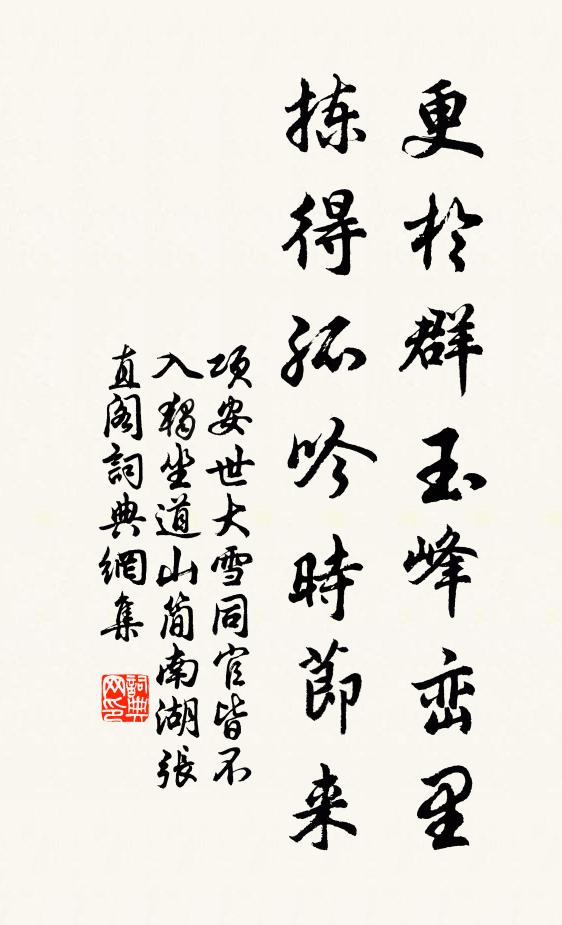 更於群玉峰峦里
拣得孤吟時節来
項安世大雪同官皆不
入獨坐道山簡南湖張
直阁詞典網集
詞典网印